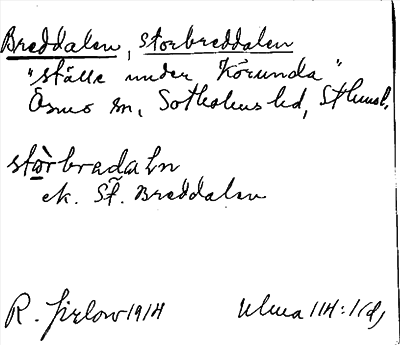 Breddalen, Storbreddalen
"ställe under Körunda"
Ösmo sn, Sotholms hd, Sthmsl.
stòrbradaln
ek. St. Breddalen
R. Jirlow 1914 Ulma 114:1(d)